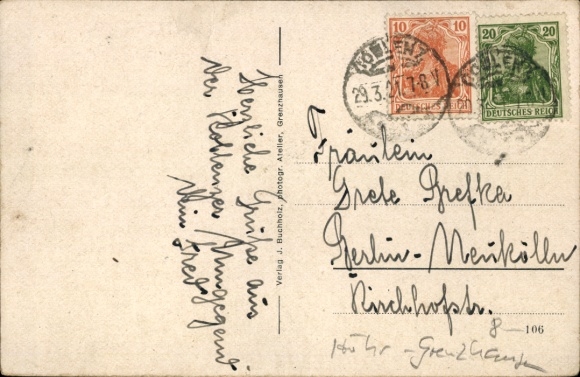 Herzliche Grüße aus
der Koblenzer Umgegend.
Dein Fred
Verlag J. Buchholz, photogr. Atelier, Grenzhausen
10
20
DEUTSCHES REICH
DEUTSCHES REICH
COBLENZ
29.3.21. 7-8 V
COBLENZ
Fräulein
Grete Brefka
Berlin-Neukölln
Kirchhofstr.
8—106
Höhr - Grenzhausen